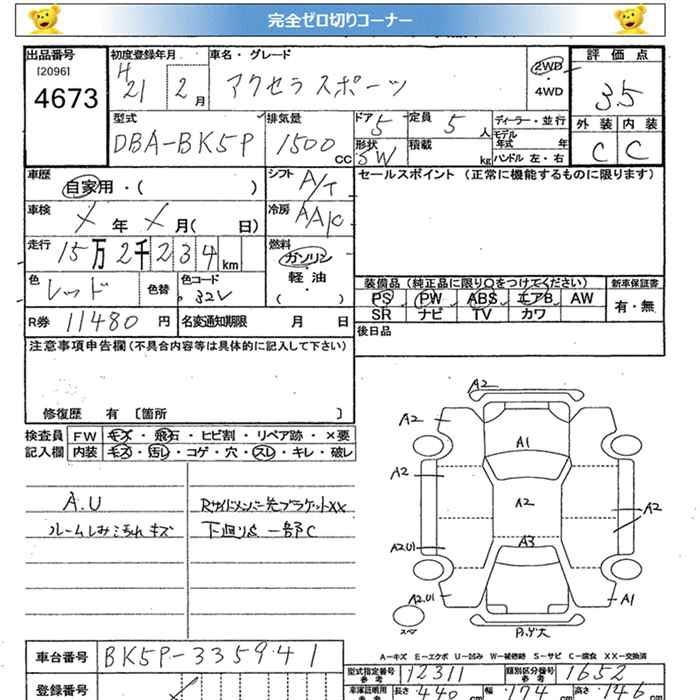 完全ゼロ切りコーナー
出品番号 初度登録年月 車名・グレード 2WD 評価点
[2096] 4673 H21 2月 アクセラスポーツ ・ 4WD 3.5
型式 排気量 ドア 定員 ディーラー・並行 外装 内装
DBA-BK5P 1500CC 5 5人 モデル年式 年 C C
形状 SW 積載 kg ハンドル 左・右
車歴 自家用・( ) シフト A/T セールスポイント (正常に機能するものに限ります)
車検 X年 X月( 日) 冷房 AAC
走行 15万2千234km 燃料 ガソリン・軽油
色 レッド 色替 色コード 32V ( ・ )
装備品 (純正品に限り○をつけてください) 新車保証書
PS PW ABS エアB AW 有・無
SR ナビ TV カワ
R券 11480円 名変通知期限 月 日 後日品
注意事項申告欄 (不具合内容等は具体的に記入して下さい)
修復歴 有 〔箇所 〕
検査員 FW キズ・飛石・ヒビ割・リペア跡・×要
記入欄 内装 キズ・汚し・コゲ・穴・スレ・キレ・破レ
A.U Rサイドメンバー先ブラケットXX
ルームしみこげれキズ 下回り 一部C
A2
A2 A1
A2 A2 A2
A2U1 A3
A2.U1 A1
スペア
A-キズ E-エクボ U-凹み W-補修跡 S-サビ C-腐食 XX-交換済
車台番号 BK5P-335941
型式指定番号 参考 12311 類別区分番号 参考 1652
登録番号
車庫証明用 参考 長さ 440cm 幅 174cm 高さ 146cm